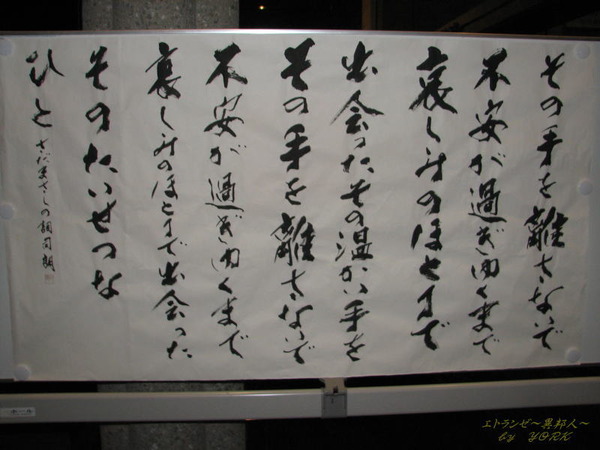 その手を離さないで
不安が過ぎゆくまで
哀しみのほとりで
出会ったその温かい手を
その手を離さないで
不安が過ぎゆくまで
哀しみのほとりで出会った
そのたいせつな
ひと
さだまさしの詞
エトランゼ～異邦人～
by YORK